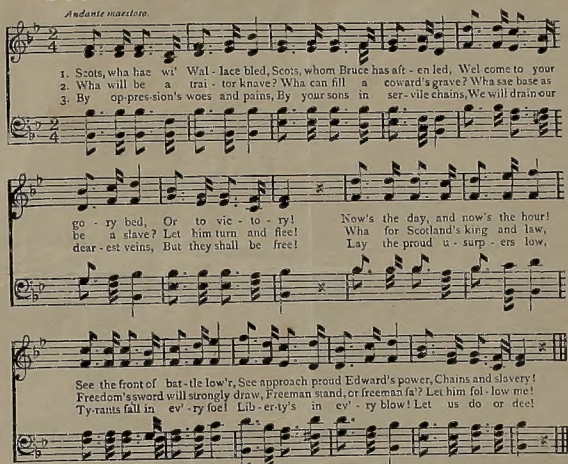 Andante maestoso.
1. Scots, wha hae wi' Wal - lace bled, Scots, whom Bruce has aft - en led, Wel come to your
2. Wha will be a trai - tor knave? Wha can fill a coward's grave? Wha sae base as
3. By op - pres - sion's woes and pains, By your sons in ser - vile chains, We will drain our
go - ry bed, Or to vic - to - ry! Now's the day, and now's the hour!
be a slave? Let him turn and flee! Wha for Scotland's king and law,
dear - est veins, But they shall be free! Lay the proud u - surp - ers low,
See the front of bat - tle low'r, See approach proud Edward's power, Chains and slavery!
Freedom's sword will strongly draw, Freeman stand, or freeman fa'? Let him fol - low me!
Ty - rants fall in ev' - ry foe! Lib - er - ty's in ev' - ry blow! Let us do or dee!